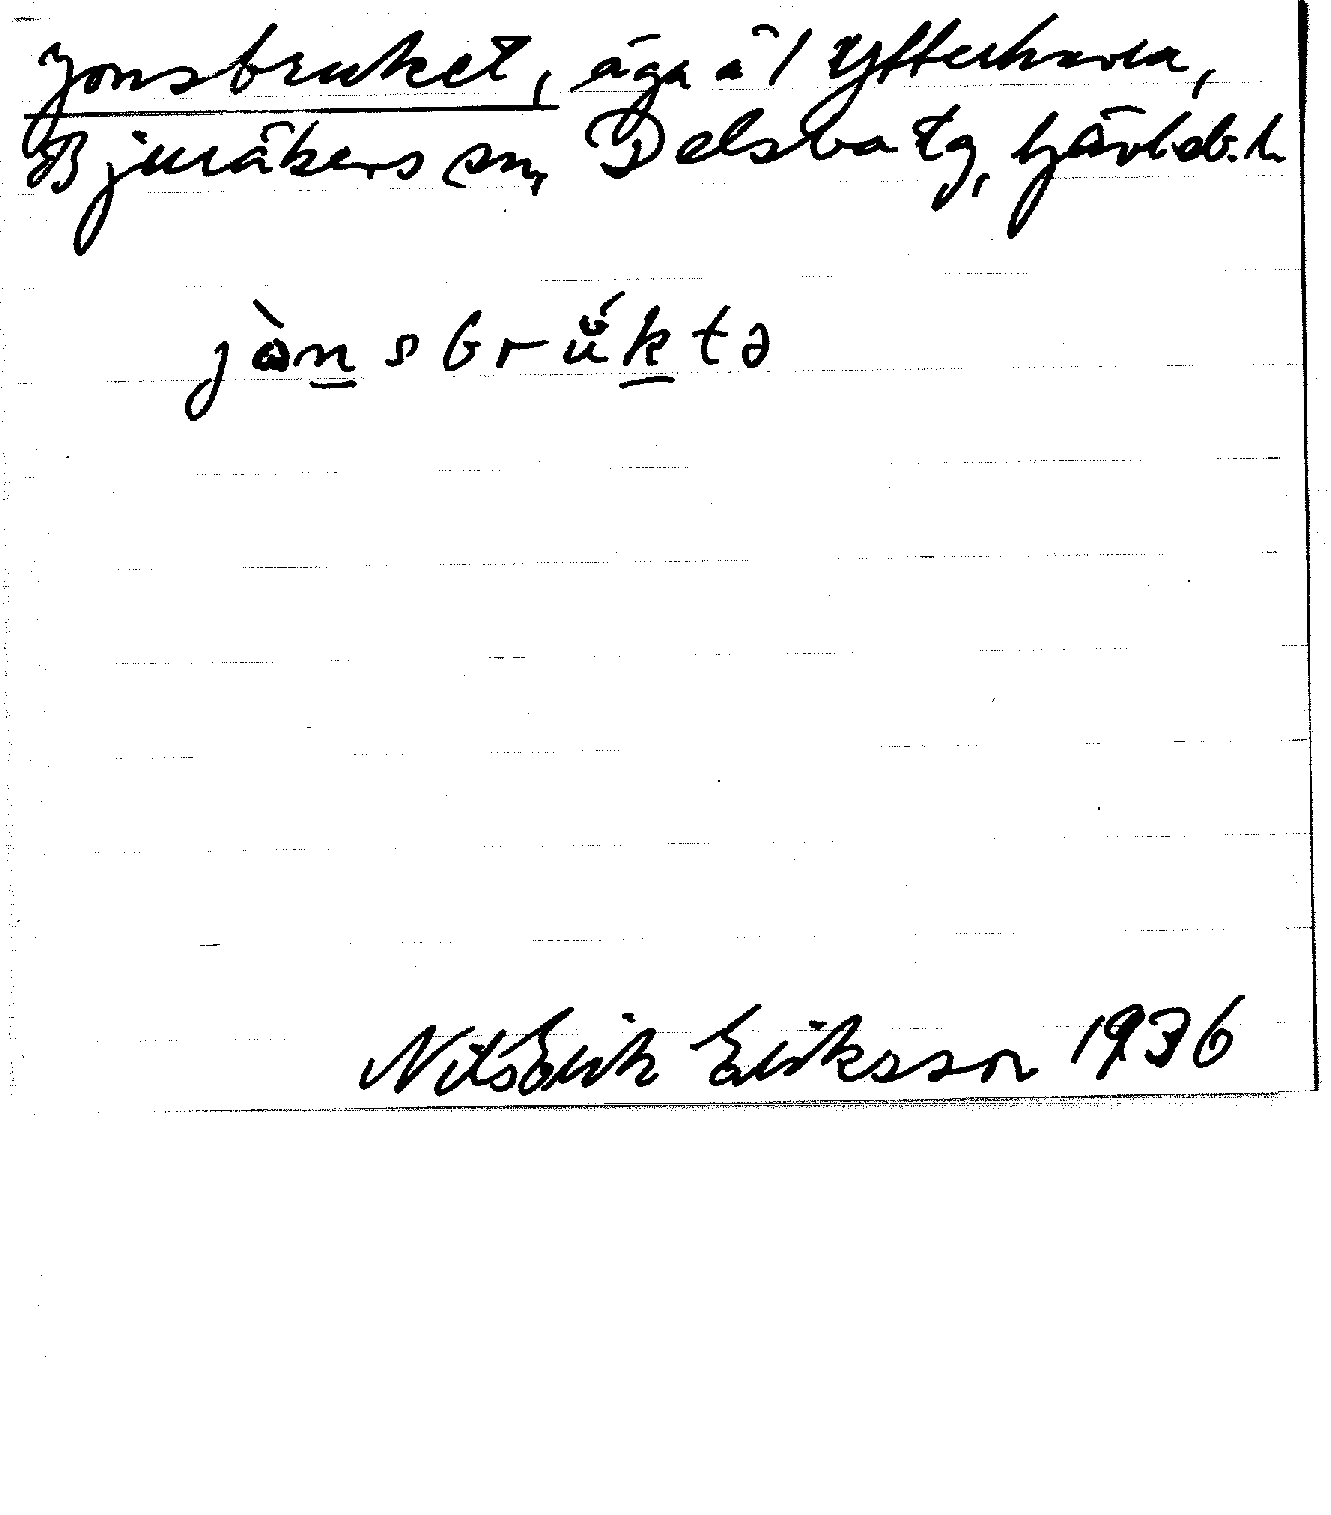 Jonsbruket, äga å 1 Ytterhavra,
Bjuråkers sn, Delsbo tg, Gävleb. l.
jònsbrúktə
Nils Erik Eriksson 1936